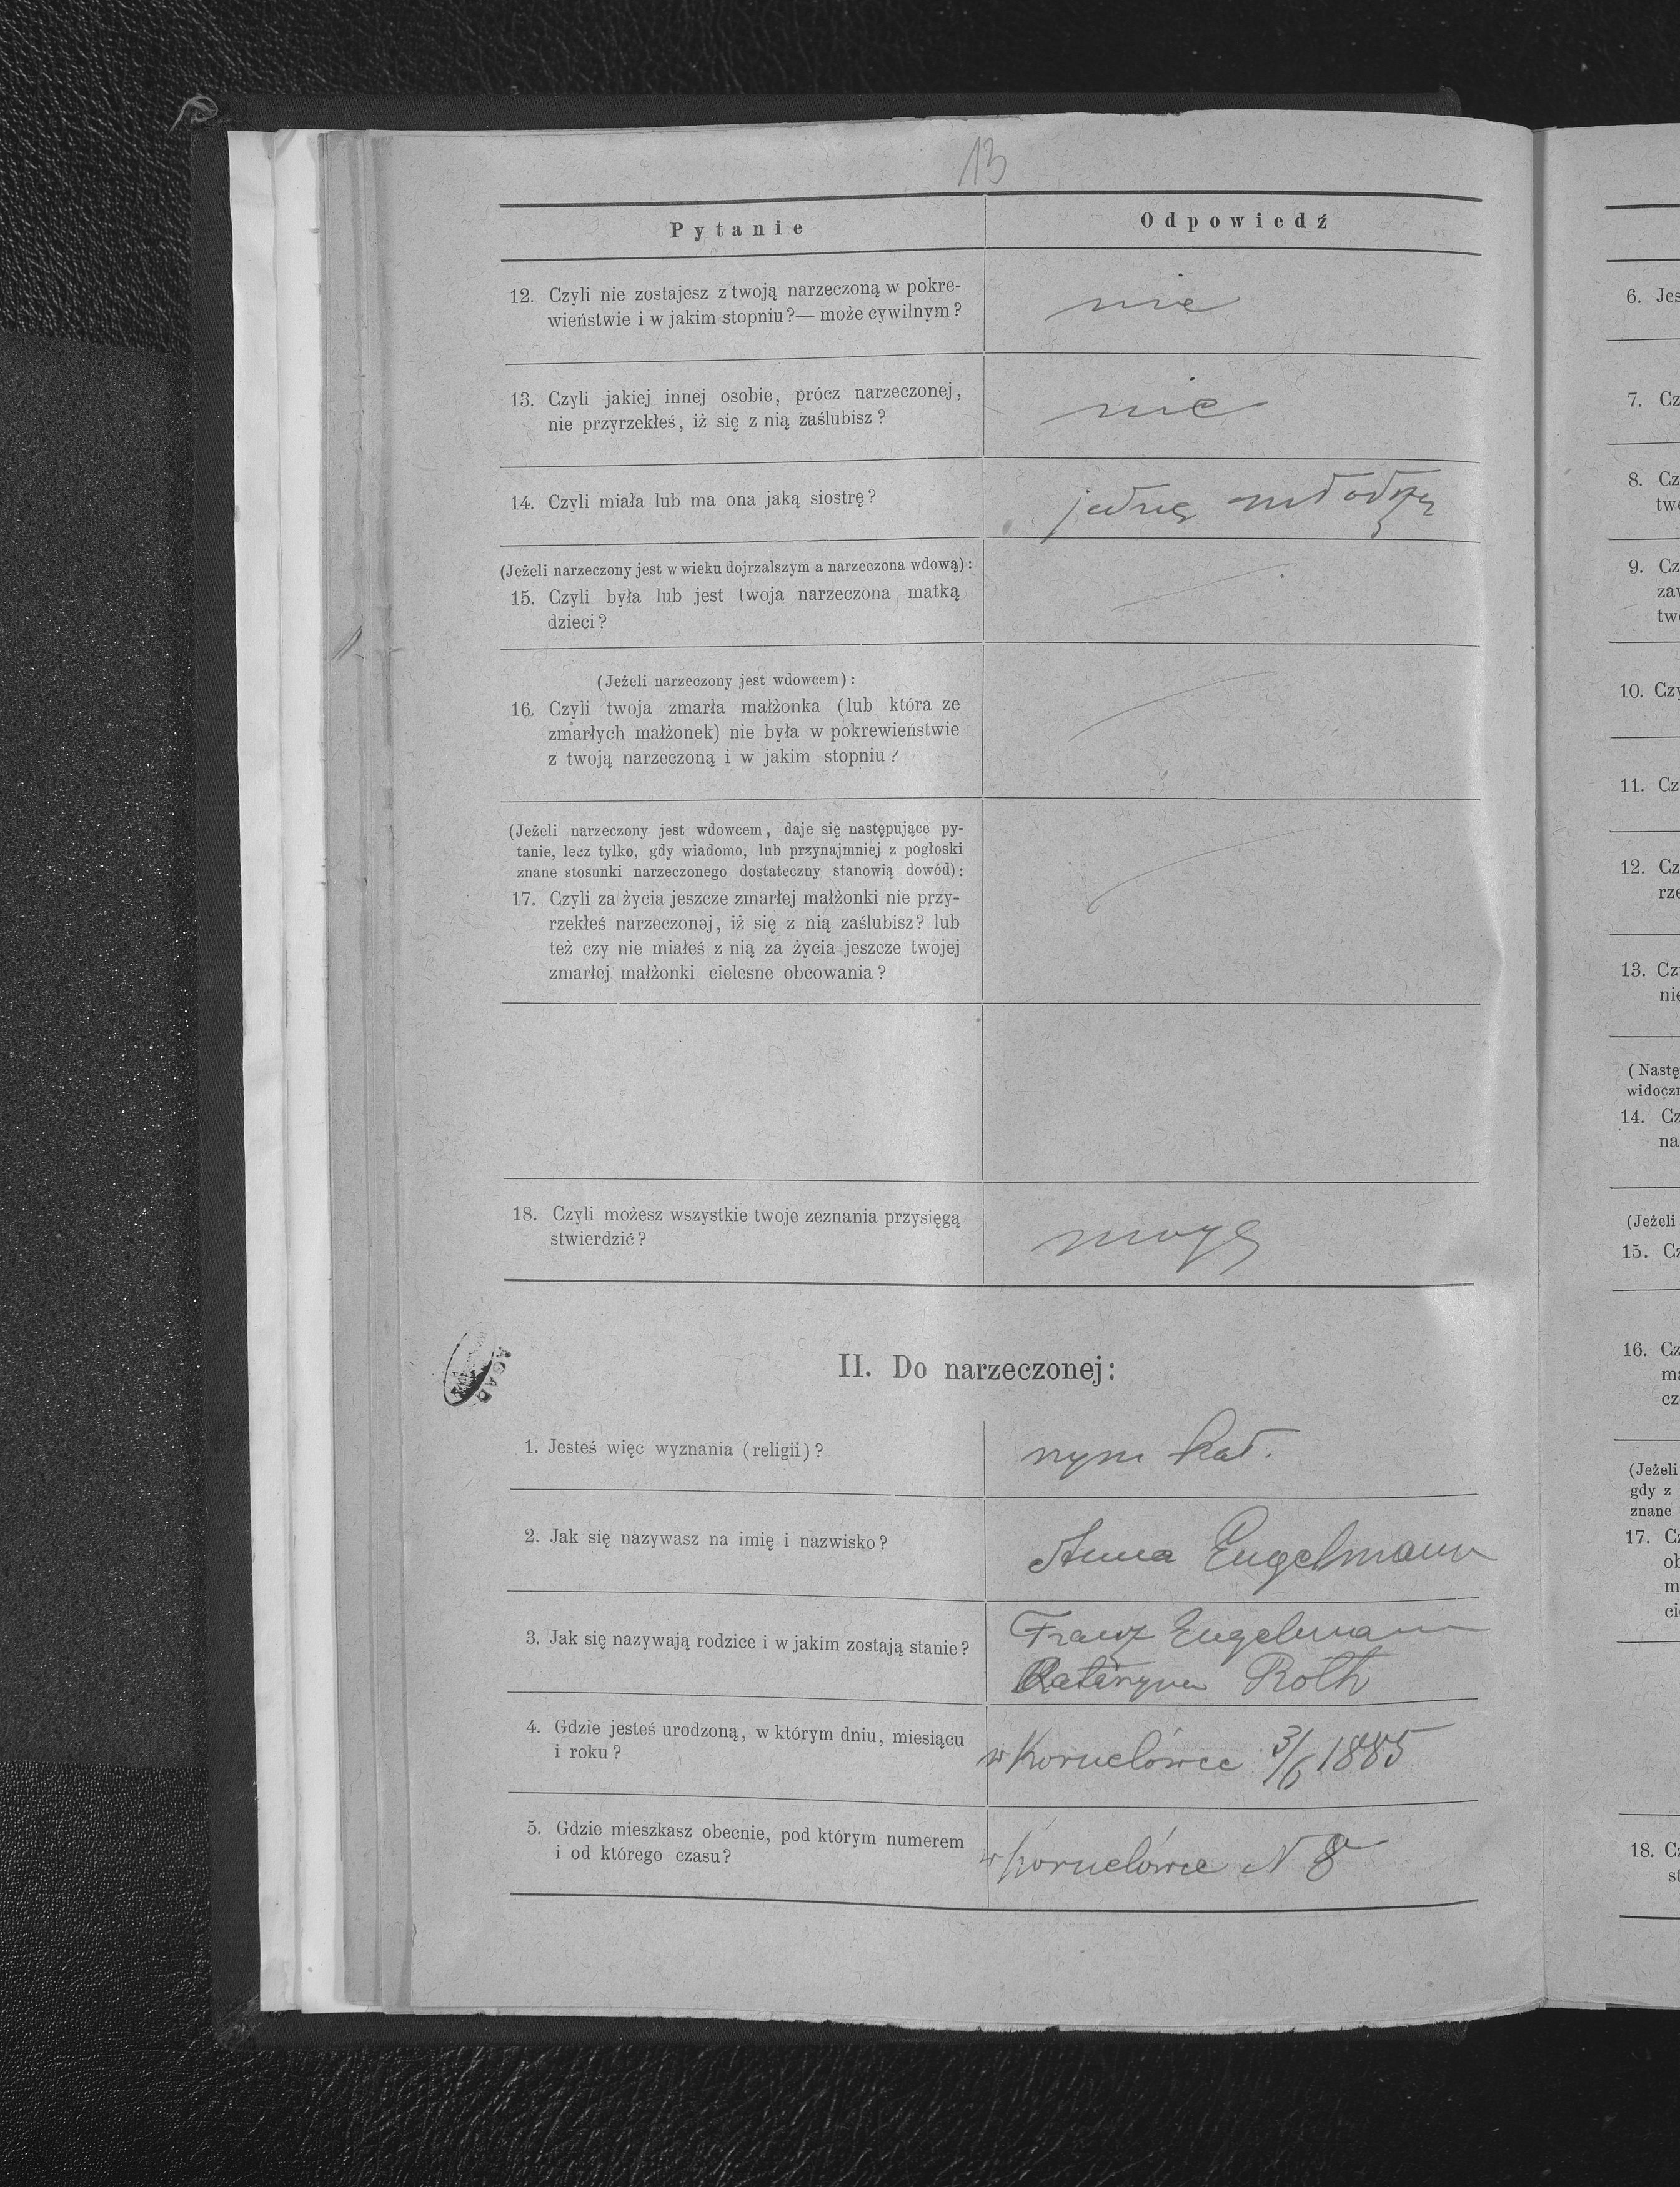 13
Pytanie
Odpowiedź
12. Czyli nie zostajesz z twoją narzeczoną w pokre-
wieństwie i w jakim stopniu?— może cywilnym?
nie
13. Czyli jakiej innej osobie, prócz narzeczonej,
nie przyrzekłeś, iż się z nią zaślubisz?
nie
14. Czyli miała lub ma ona jaką siostrę?
jedną młodszą
(Jeżeli narzeczony jest w wieku dojrzalszym a narzeczona wdową):
15. Czyli była lub jest twoja narzeczona matką
dzieci?
(Jeżeli narzeczony jest wdowcem):
16. Czyli twoja zmarła małżonka (lub która ze
zmarłych małżonek) nie była w pokrewieństwie
z twoją narzeczoną i w jakim stopniu?
(Jeżeli narzeczony jest wdowcem, daje się następujące py-
tanie, lecz tylko, gdy wiadomo, lub przynajmniej z pogłoski
znane stosunki narzeczonego dostateczny stanowią dowód):
17. Czyli za życia jeszcze zmarłej małżonki nie przy-
rzekłeś narzeczonej, iż się z nią zaślubisz? lub
też czy nie miałeś z nią za życia jeszcze twojej
zmarłej małżonki cielesne obcowania?
18. Czyli możesz wszystkie twoje zeznania przysięgą
stwierdzić?
mogę
AGAD
II. Do narzeczonej:
1. Jesteś więc wyznania (religii)?
rzym kat.
2. Jak się nazywasz na imię i nazwisko?
Anna Engelmann
3. Jak się nazywają rodzice i w jakim zostają stanie?
Franz Engelmann
Katarzyna Roth
4. Gdzie jesteś urodzoną, w którym dniu, miesiącu
i roku?
w Kornelówce 3/6 1885
5. Gdzie mieszkasz obecnie, pod którym numerem
i od którego czasu?
w Kornelówce N 8
6. Jes
7. Cz
8. Cz
tw
9. Cz
za
tw
10. Czy
11. Cz
12. Cz
rze
13. Cz
nie
(Nastę
widocz
14. Cz
na
(Jeżeli
15. Cz
16. Cz
ma
cz
(Jeżeli
gdy z
znane
17. Cz
ob
m
ci
18. Cz
st